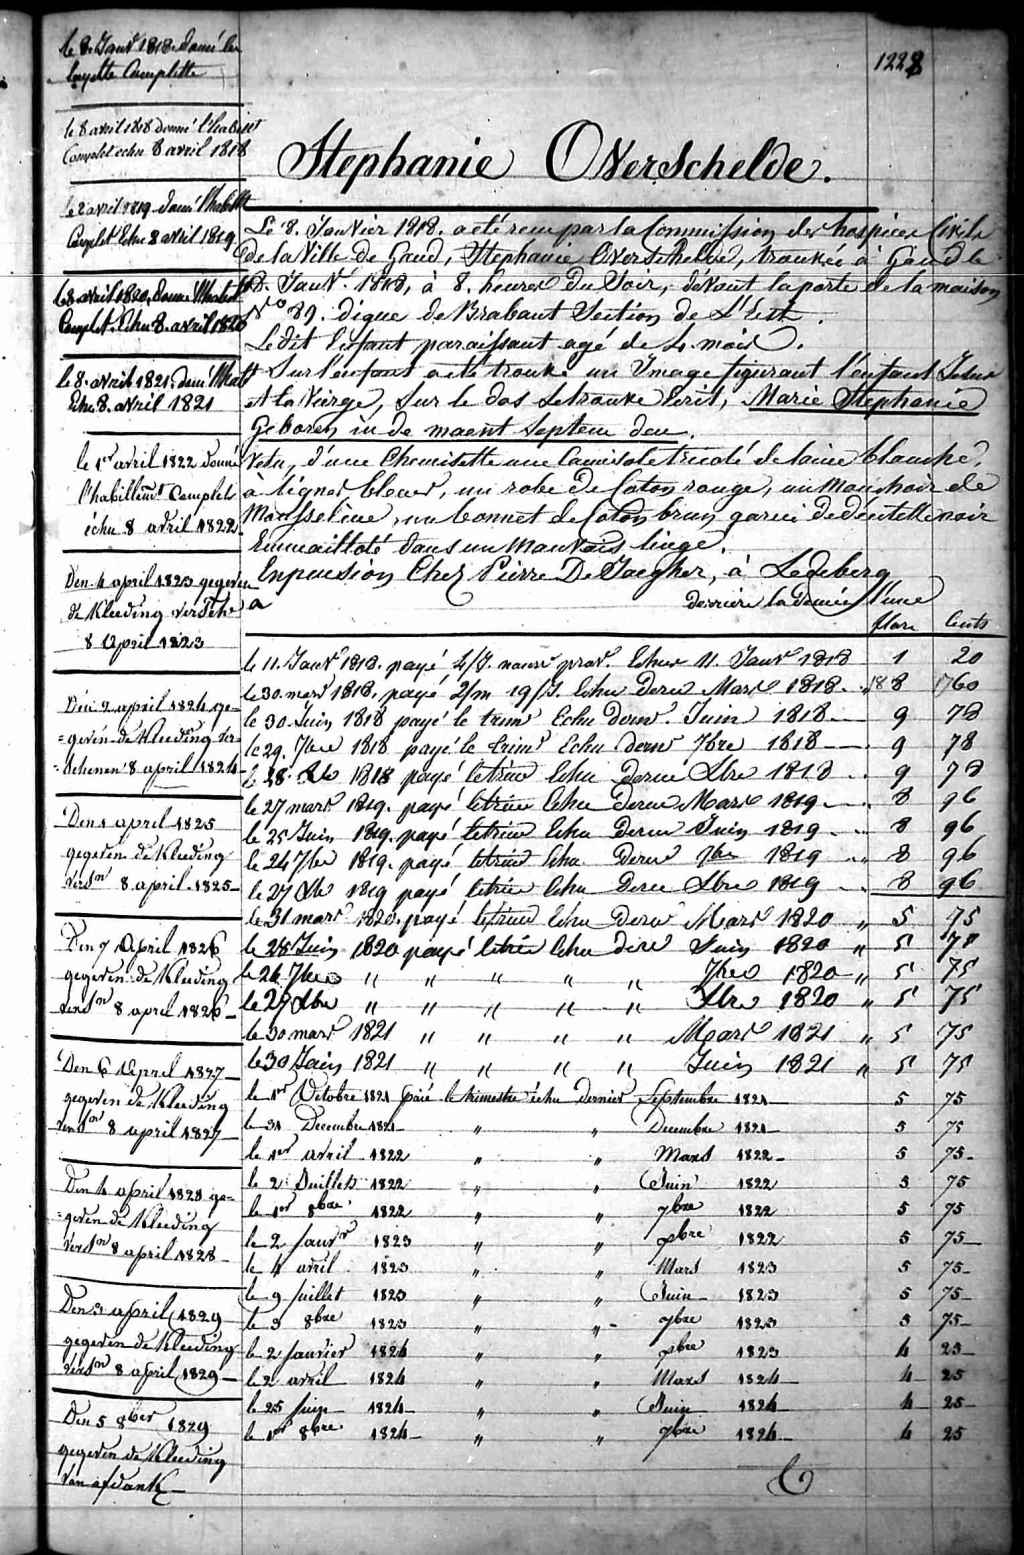 1228
le 8. Janv.r 1818. donné la
layette Complette
le 8 avril 1818 donné l'habillet
Complet echu 8 avril 1818
le 2 avril 1819 donné l'habillt
Complet Echu 8 avril 1819.
le 8 avril 1820, donné l'habilt
Complet. Echu 8. avril 1820
le 8. avril 1821. donné l'habilt
Echu 8. avril 1821
le 1er avril 1822 donné
l'habillemt Complets
échu 8 avril 1822.
Den 4 april 1823 gegeven
de Kleeding verschn
8 April 1823
Den 2 april 1824 ge-
=geven de Kleeding ver-
=schenen 8 april 1824
Den 1 april 1825
gegeven de Kleeding
versn 8 april 1825
Den 7 April 1826
gegeven de Kleeding
versn 8 april 1826
Den 6 April 1827
gegeven de Kleeding
versn 8 april 1827
Den 4 april 1828 ge-
=geven de Kleeding
versn 8 april 1828
Den 3 april 1829
gegeven de Kleeding
versn 8 april 1829
Den 5 8ber 1829
gegeven de Kleeding
van afdank
Stephanie Overschelde.
Le 8. Janvier 1818. a été recu par la Commission des hospices Civils
de la Ville de Gand, Stephanie Overschelde, trouvée à Gand le
8. Janv.r 1818, à 8. heures du Soir, dévant la porte de la maison
No 89. digue de Brabant Section de L'Est.
Ledit Enfant paraissant agé de 4. mois.
Sur l'enfant a été trouvé un Image figurant l'enfant Jesus
et la Vierge, Sur le dos se trouve Ecrit, Marie Stephanie
Geboren in de maent Septem deu.
Vetu, d'une Chemisette une Camisole tricoté de laine blanche,
à lignes bleues, un robe de Coton rouge, un Mouchoir de
Mousseline, un bonnet de Coton brun garni de déntelle noir
Emmailloté dans un Mauvais linge.
En pension Chez Pierre De Jaegher, à Ledeberg
a derrière la
flor Cents
le 11. Janvr 1818. payé 4/J. nourr prov. Echus 11. Janvr 1818 1 20
le 30. mars 1818, payé 2/m 19/J. Echu derer Mars 1818. 8 60
le 30. Juin 1818 payé le trimr Echu derer. Juin 1818 9 78
le 29. 7bre 1818 payé le trimr Echu derer 7bre 1818 9 78
le 28. Xbre 1818 payé le trim Echu derer Xbre 1818 9 78
le 27 mars 1819. payé le trim Echu derer Mars 1819 8 96
le 25 Juin 1819. payé le trim Echu derer Juin 1819 8 96
le 24 7bre 1819. payé le trim Echu derer 7bre 1819 8 96
le 27 Xbre 1819 payé le trim Echu derer Xbre 1819 8 96
le 31 mars 1820. payé le trim Echu derer Mars 1820 " 5 75
le 28 Juin 1820 payé le trim Echu derer Juin 1820 " 5 75
le 26 7bre " " " " " 7bre 1820 " 5 75
le 27 Xbre " " " " " Xbre 1820 " 5 75
le 30 mars 1821 " " " " Mars 1821 " 5 75
le 30 Juin 1821 " " " " Juin 1821 " 5 75
le 1er Octobre 1821 païé le trimestre échu dernier Septembre 1821 5 75
le 31 Decembre 1821 " " Decembre 1821 5 75
le 1er avril 1822 " " Mars 1822 5 75
le 2 Juillet 1822 " " Juin 1822 5 75
le 1er 8bre 1822 " " 7bre 1822 5 75
le 2 janvr 1823 " " Xbre 1822 5 75
le 4 avril 1823 " " Mars 1823 5 75
le 9 juillet 1823 " " Juin 1823 5 75
le 3 8bre 1823 " " 7bre 1823 5 75
le 2 janvier 1824 " " Xbre 1823 4 25
le 2 avril 1824 " " Mars 1824 4 25
le 25 juin 1824 " " Juin 1824 4 25
le 1er 8bre 1824 " " 7bre 1824 4 25